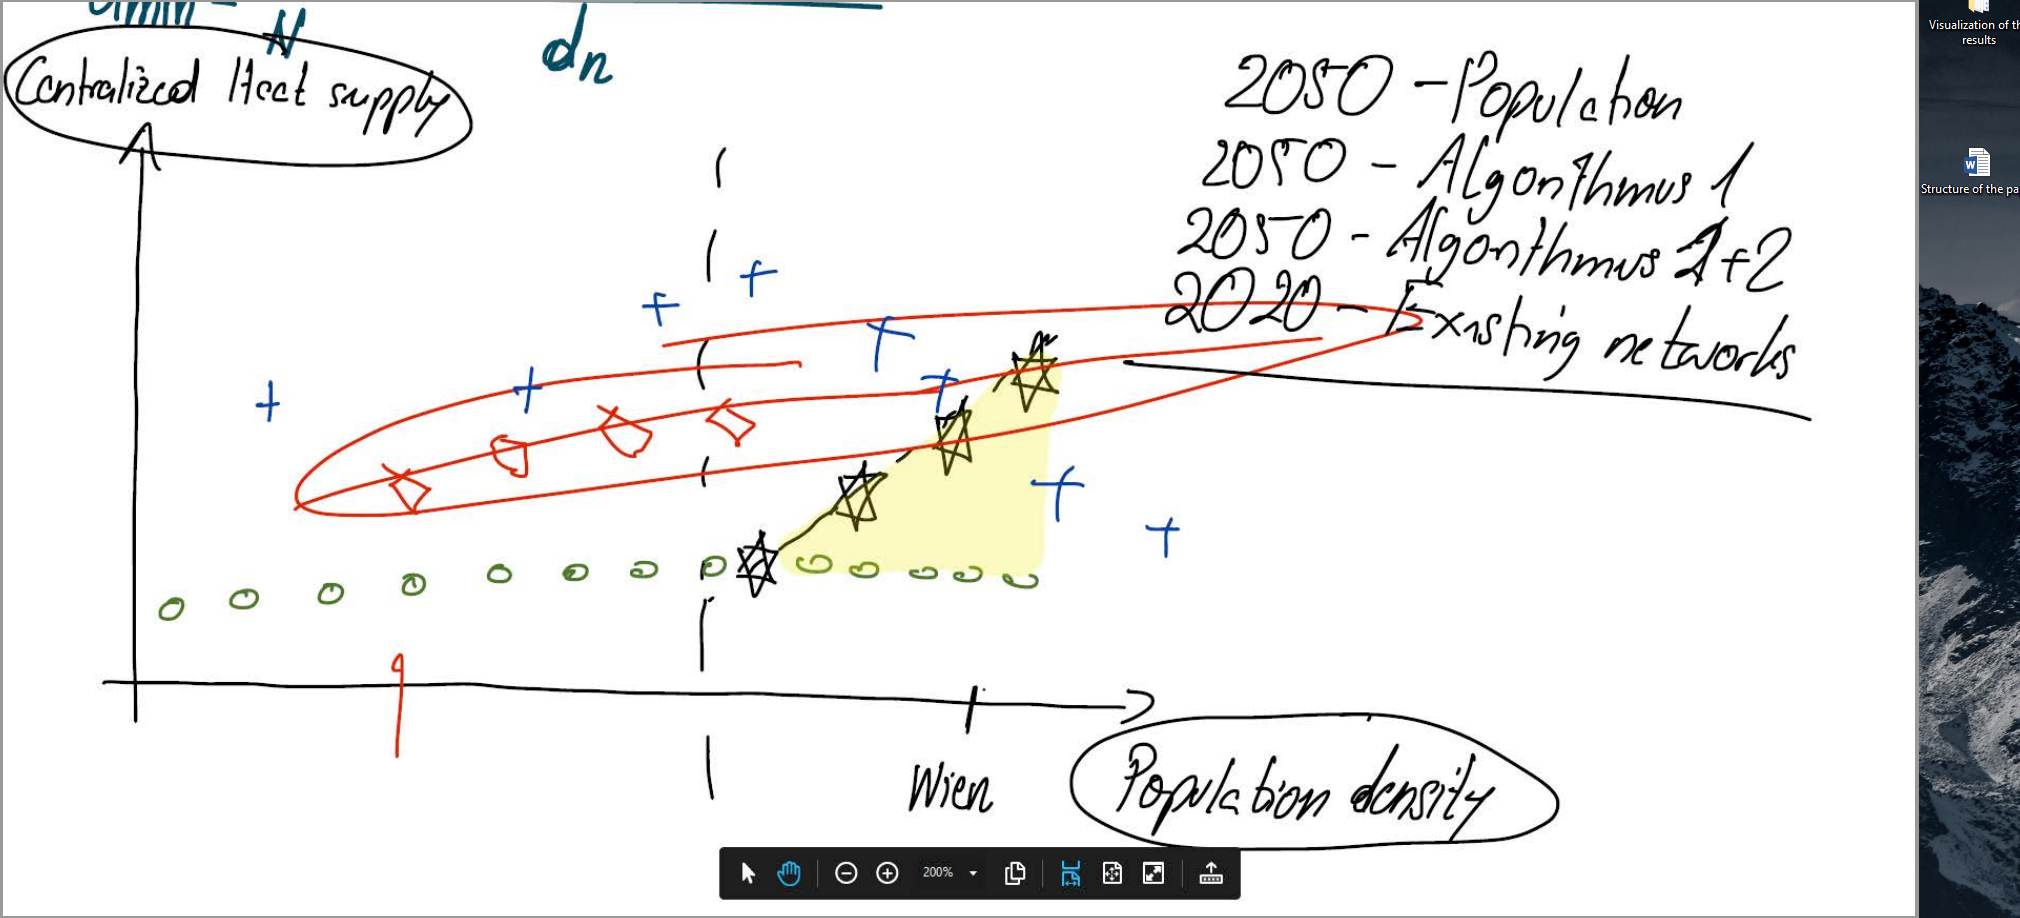 dmin = N
dn
Centralized Heat supply
2050 - Population
2050 - Algorithmus 1
2050 - Algorithmus 1+2
2020 - Existing networks
Wien
Population density
200%
Visualization of th
results
Structure of the pa